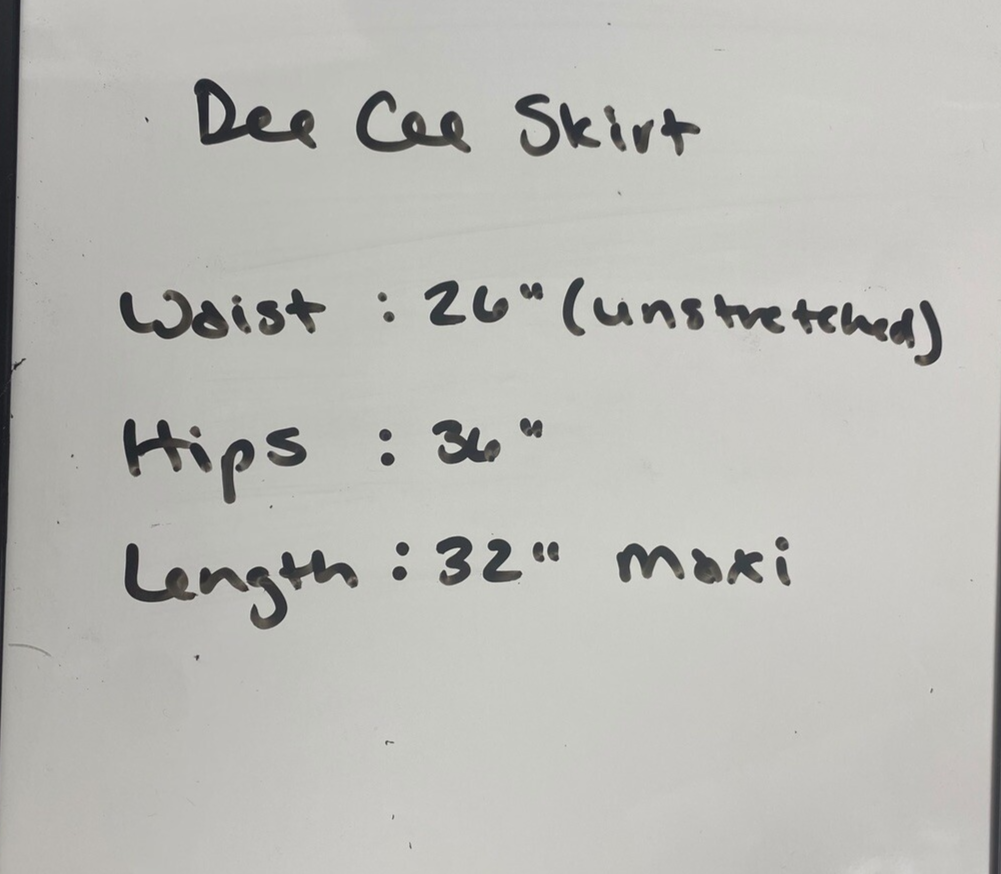 Dee Cee Skirt
Waist : 26" (unstretched)
Hips : 36"
Length : 32" maxi